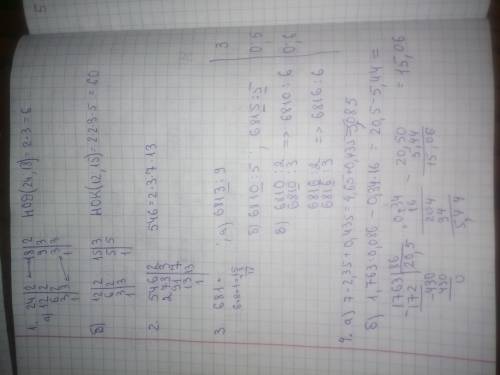 1.
а) 24|2 18|2 НОД(24,18) = 2·3 = 6
12|2 9|3
6|2 3|3
3|3 1
1
б) 12|2 15|3 НОК(12,15) = 2·2·3·5 = 60
6|2 5|5
3|3 1
1
2. 546|2 546 = 2·3·7·13
273|3
91|7
13|13
1
3. 681* а) 6813 : 9 3
6+8+1=15
б) 6810 : 5 ; 6815 : 5 0,5
в) 6810 : 2
6810 : 3 => 6810 : 6 0,6
6816 : 2
6816 : 3 => 6816 : 6
4. а) 7 - 2,35 + 0,435 = 4,65 + 0,435 = 5,085
б) 1,763 : 0,086 - 0,34·16 = 20,5 - 5,44 = = 15,06
1763|86
172 |20,5
430
430
0
0,34
16
204
34
5,44
20,50
5,44
15,06